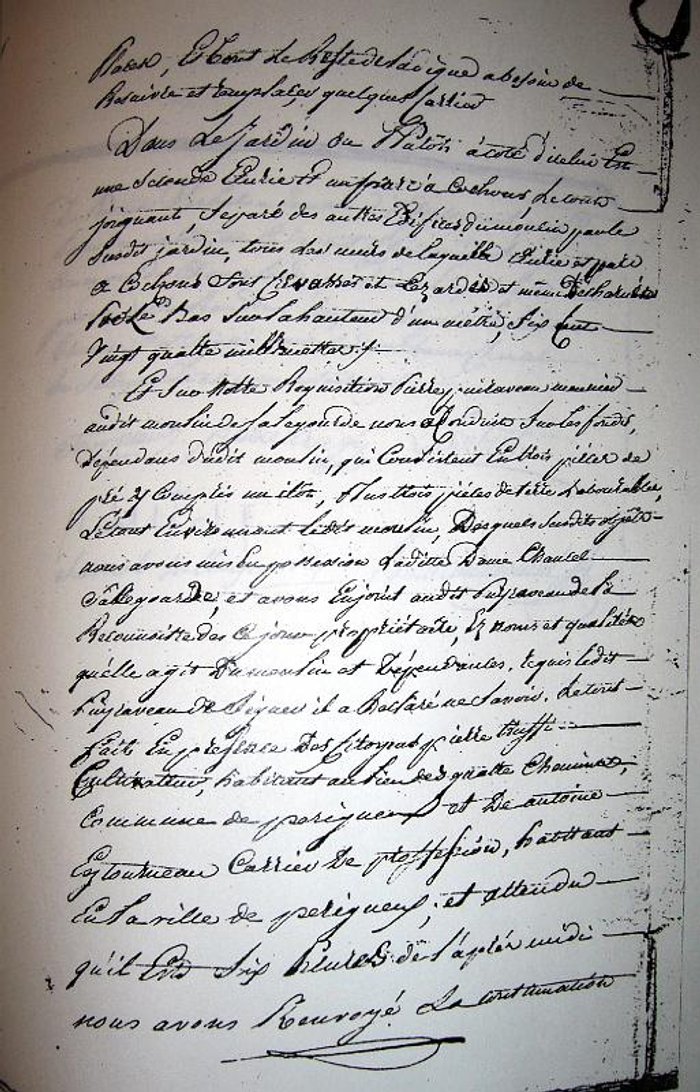 et tout le Reste de la digue a besoin de
et remplacer quelques
Dans le jardin ou à coté d'icelui Est
une seconde Ecurie Et un parc a Cochons, Le tout
joignant, separé des autres Edifices du moulin par le
susdit jardin, tous les murs de laquelle Ecurie et parc
a Cochons sont Crevassés et Lezardés et même
Le Bas sur la hauteur d'un mètre, six Cent
Vingt quatre mille ./.
Et sur notre Requisition Pierre puiraveau meunier
audit moulin de nous a Conduit sur les fonds,
Dépendans dudit moulin, qui Consistent En trois pièces de
pré y Compris un ilot, Plus trois pièces de terre Labourable,
Le tout Environnant ledit moulin, Desquels susdits objets
nous avons mis En possession Laditte Dame Chancel
et avons Enjoint audit Puyraveau de la
Reconnoitre des Ce jour propriétaire, Ez noms et qualités
qu'elle agit Du moulin et Dépendances, requis ledit
Puyraveau De Signer il a Déclaré ne Savoir, Le tout
fait En présence Des Citoyens pierre
Cultivateur, habitant au lieu des quatre Chemins,
Commune de perigueux et De antoine
Eytourneau Carrier De proffession, habitant
En la ville de perigueux; et attendu
qu'il Est Six heures de l'après midi
nous avons Renvoyé La continuation